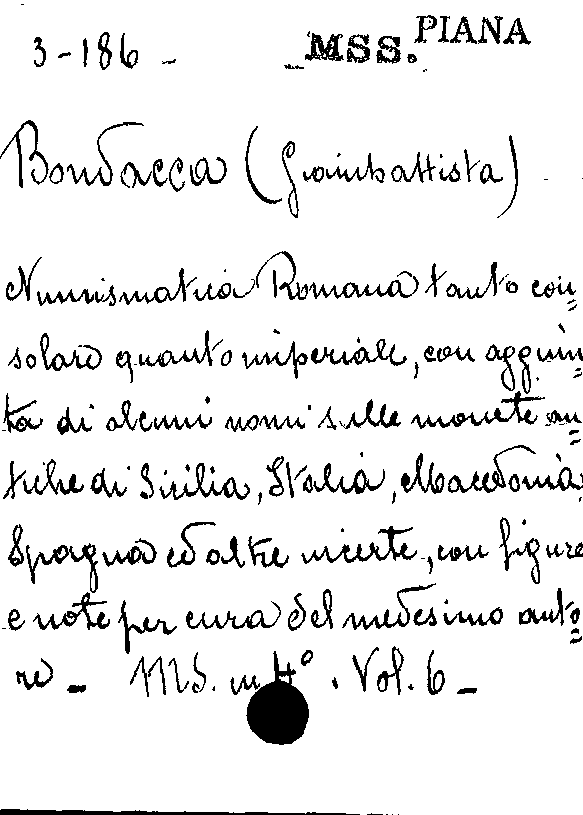 3-186 - MSS. PIANA
Bondacca (Giambattista)
Numismatica Romana tanto con=
solare quanto imperiale, con aggiun=
ta di alcuni nomi sulle monete an=
tiche di Sicilia, Italia, Macedonia
Spagna ed altre incerte, con figure
e note per cura del medesimo auto=
re - MS. in 4° . Vol. 6 -